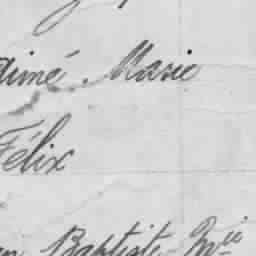 Aimé Marie
Félix
Baptiste Mie